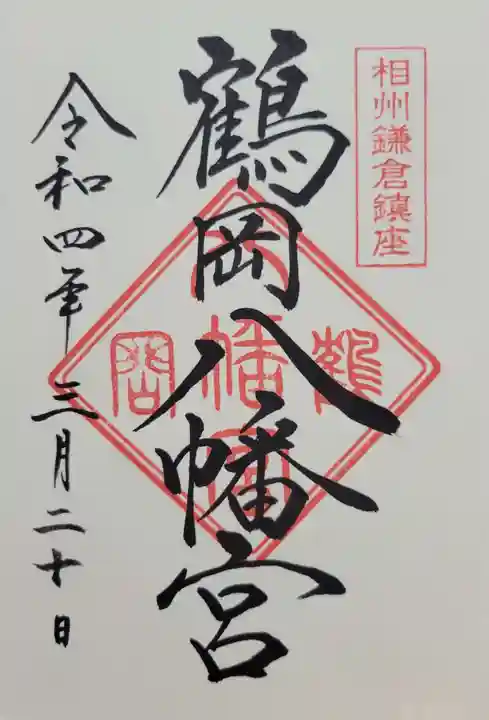 相州鎌倉鎮座
鶴岡八幡宮
令和四年三月二十日